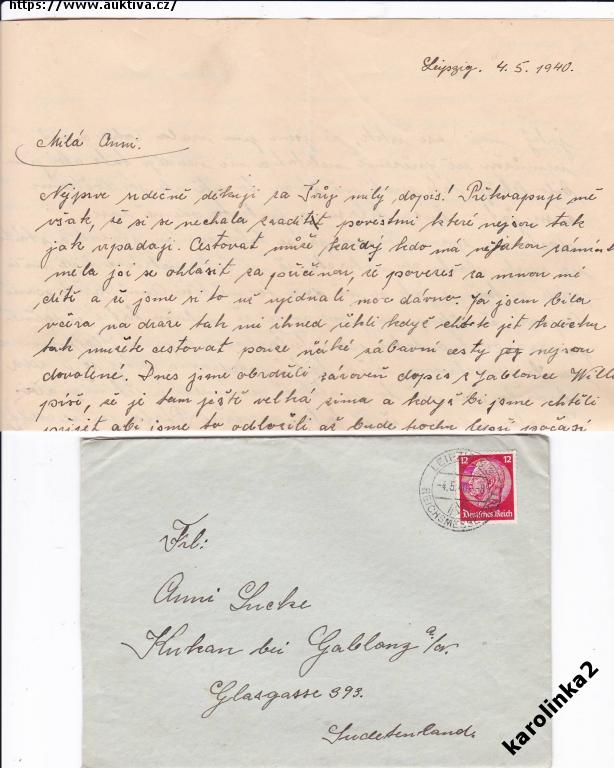 https://www.auktiva.cz/
Leipzig. 4. 5. 1940.
Milá Anni.
Nejprve srdečně děkuji za Tvůj milý dopis! Překvapuje mě
však, že si se nechala zvadit pověstmi které nejsou tak
jak vipadaji. Cestovat může každý kdo má nějakou
měla jsi se ohlásit za příčinou, že povezeš za mnou mé
dítě a že jsme si to už ujednali moc dávno. Já jsem bila
včera na dráze tak mi ihned řekli když chcete jet k děcku
tak mužete cestovat pouze ňáké zábavní cesty nejsou
dovolené. Dnes jsme obdrželi zároveň dopis z Jablonce Willi
píše, že je tam ještě velká zima a kdyžbi jsme chtěli
přijet abi jsme to odložili až bude trochu lepší počasí
LEIPZIG
-4.5.
REICHSMESSE
12 12
Deutsches Reich
Frl:
Anni Lucke
Kukan bei Gablonz a/N.
Glasgasse 393.
Sudetenland.
karolinka2